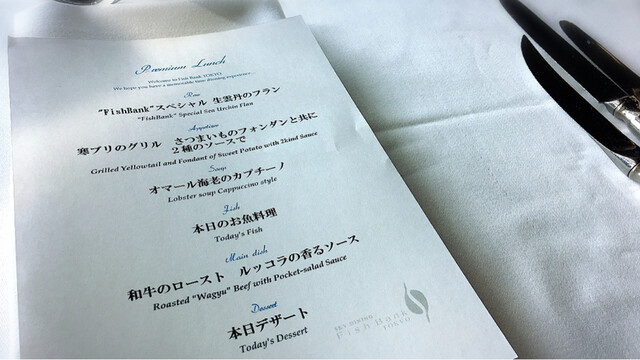 Premium Lunch
Welcome to Fish Bank TOKYO.
We hope you have a memorable time dining experience.
"FishBank"スペシャル 生雲丹のフラン
"FishBank" Special Sea Urchin Flan
Appetizer
寒ブリのグリル さつまいものフォンダンと共に
2種のソースで
Grilled Yellowtail and Fondant of Sweet Potato with 2kind Sauce
Soup
オマール海老のカプチーノ
Lobster soup Cappuccino style
Fish
本日のお魚料理
Today's Fish
Main dish
和牛のロースト ルッコラの香るソース
Roasted "Wagyu" Beef with Pocket-salad Sauce
Dessert
本日デザート
Today's Dessert
SKY DINING
Fish Bank
TOKYO